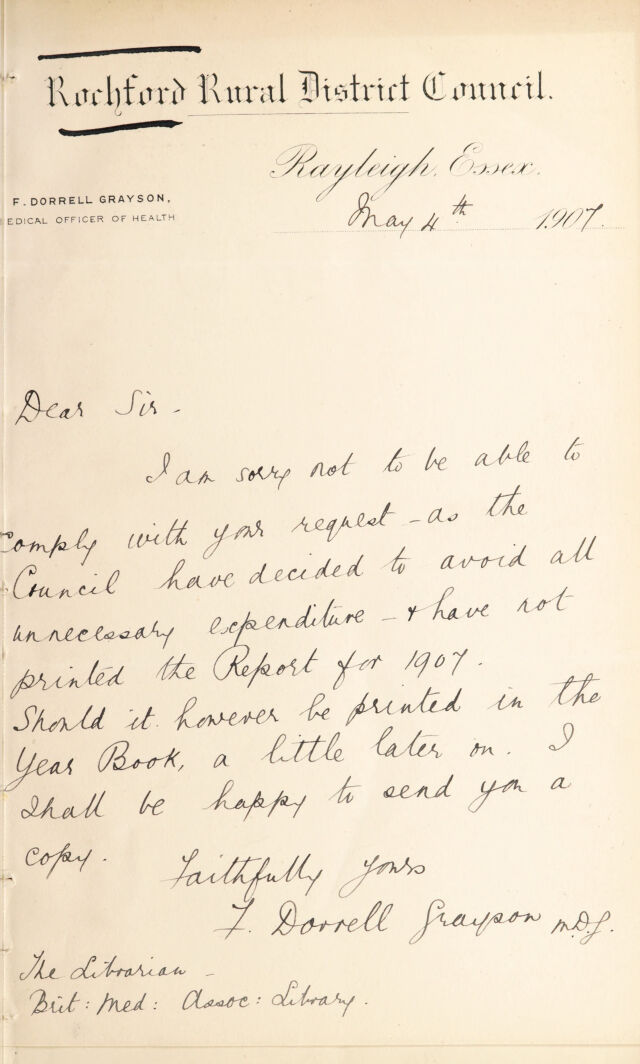 Rochford Rural District Council.
Rayleigh, Essex.
F. DORRELL GRAYSON,
EDICAL OFFICER OF HEALTH
May 4th 1907.
Dear Sir -
I am sorry not to be able to
comply with your request - as the
Council have decided to avoid all
unnecessary expenditure - & have not
printed the Report for 1907.
Should it however be printed in the
Year Book, a little later on. I
shall be happy to send you a
copy.
Faithfully yours
F. Dorrell Grayson
The Librarian -
Brit: Med: Assoc: Library.